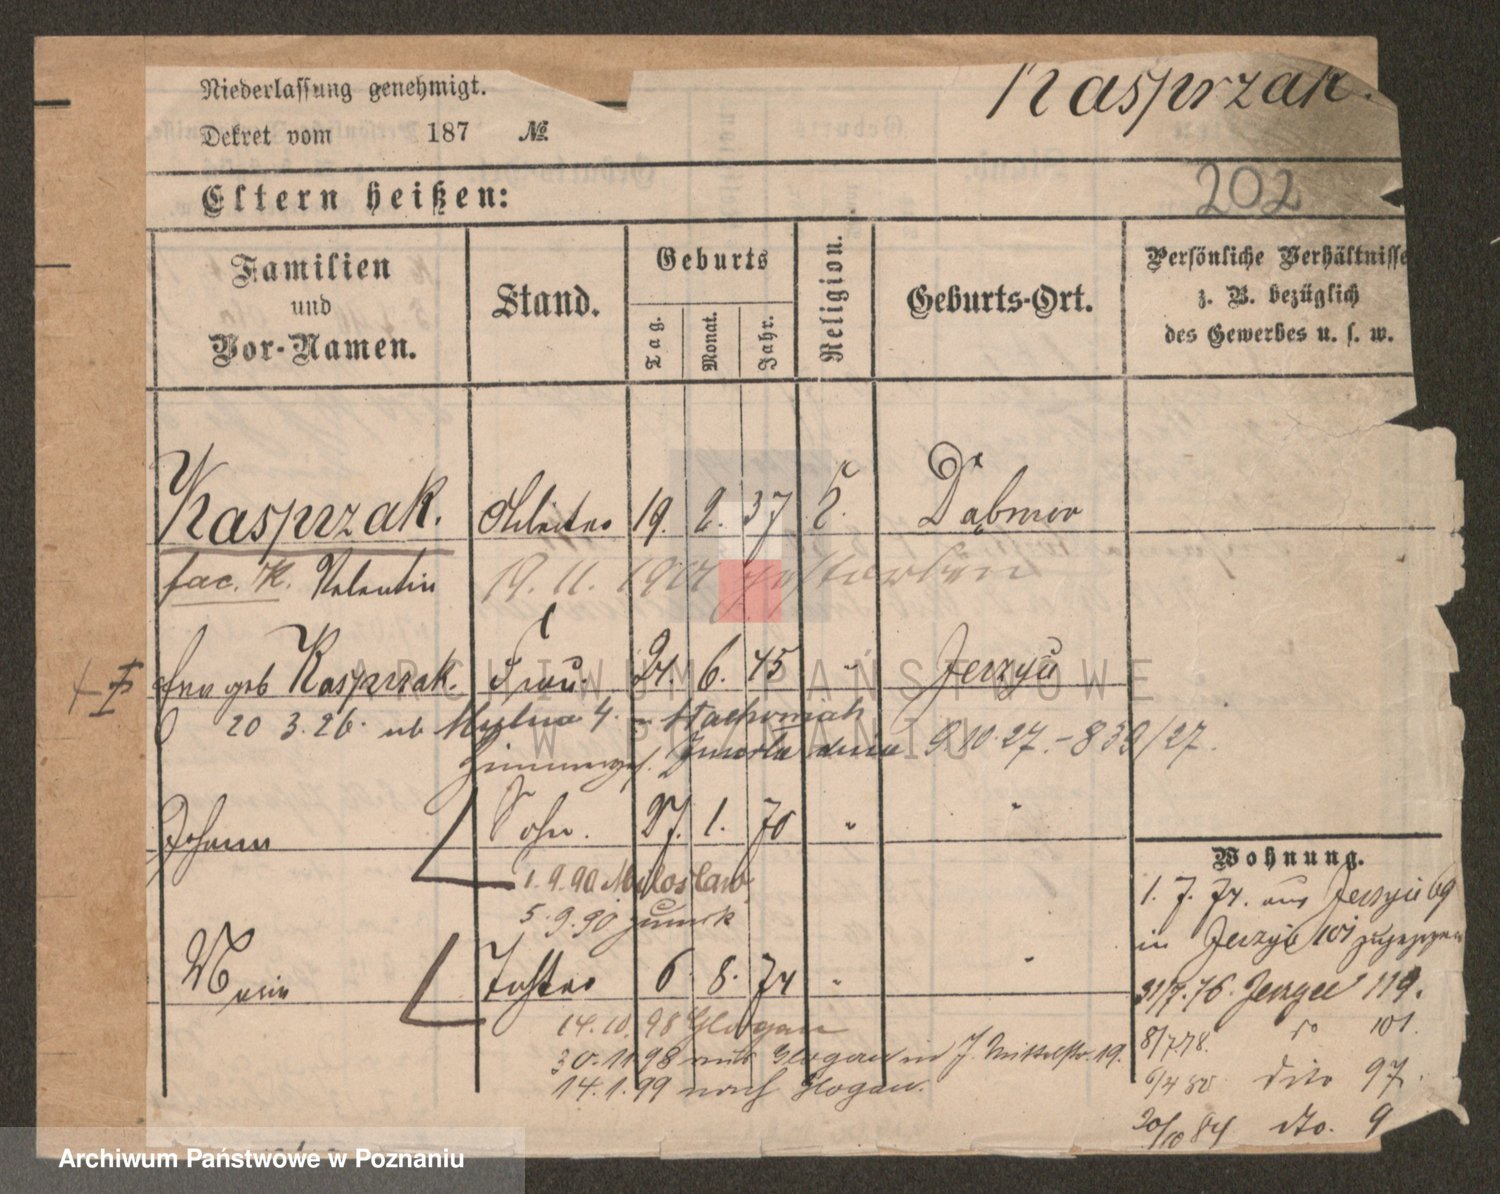 Niederlassung genehmigt.
Kasprzak.
Dekret vom 187 №
202
Eltern heißen:
Familien
und
Vor-Namen.
Stand.
Geburts
Tag.
Monat.
Jahr.
Religion.
Geburts-Ort.
Persönliche Verhältnisse
z. B. bezüglich
des Gewerbes u. s. w.
Kasprzak. 19. 2. 37 k. Dąbrow
fac. K. Valentin 19. 11. 1907 gestorben
geb Kasprzak. Frau. 24. 6. 45 " Jerzyce
20 3. 26. ub Mylna 4.
9.10.27.-839/27.
Johann Sohn. 27. 1. 70 " "
1.9.90 Miloslaw
5.9.90 zurück
Marie Tochter 6. 8. 74 " "
14.10.98 Glogau
30.11.98 aus Glogau in J. Mittelstr. 19.
14.1.99 nach Glogau.
Wohnung.
1. 7. 74. aus Jerzyce 69
in Jerzyce 101 zugezogen
31/7.76. Jerzyce 119.
8/7 78. do 101.
6/4 80 dito 97.
20/10 84 dto. 9
ARCHIWUM PAŃSTWOWE
W POZNANIU
Archiwum Państwowe w Poznaniu